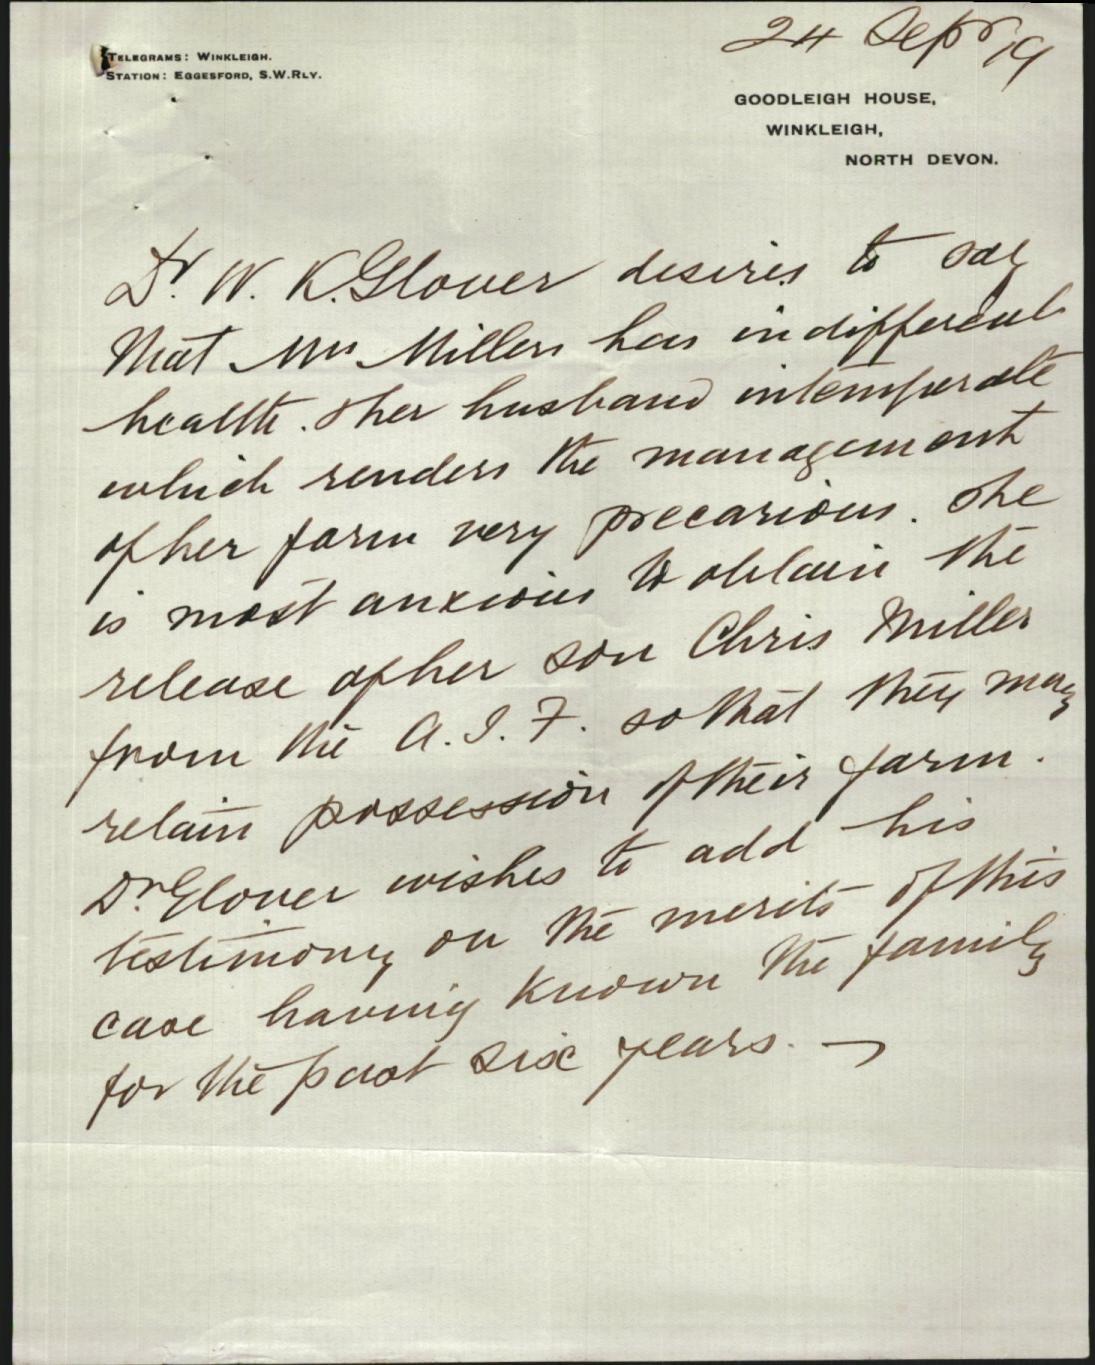 24 Sepr 19
TELEGRAMS: WINKLEIGH.
STATION: EGGESFORD, S.W.RLY.
GOODLEIGH HOUSE,
WINKLEIGH,
NORTH DEVON.
Dr. W. K. Glover desires to say
that Mrs Millers has indifferent
health. & her husband intemperate
which renders the management
of her farm very precarious. She
is most anxious to obtain the
release of her son Chris Miller
from the A.I.F. so that they may
retain possession of their farm.
Dr. Glover wishes to add his
testimony on the merits of this
case having known the family
for the past six years. —